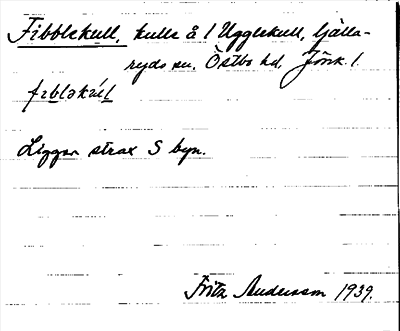 Fibblekull, kulle å 1 Ugglekull, Gjälla-
ryds sn. Östbo hd. Jönk. l.
fɪbləkul
Ligger strax S byn.
Fritz Andersson 1939.